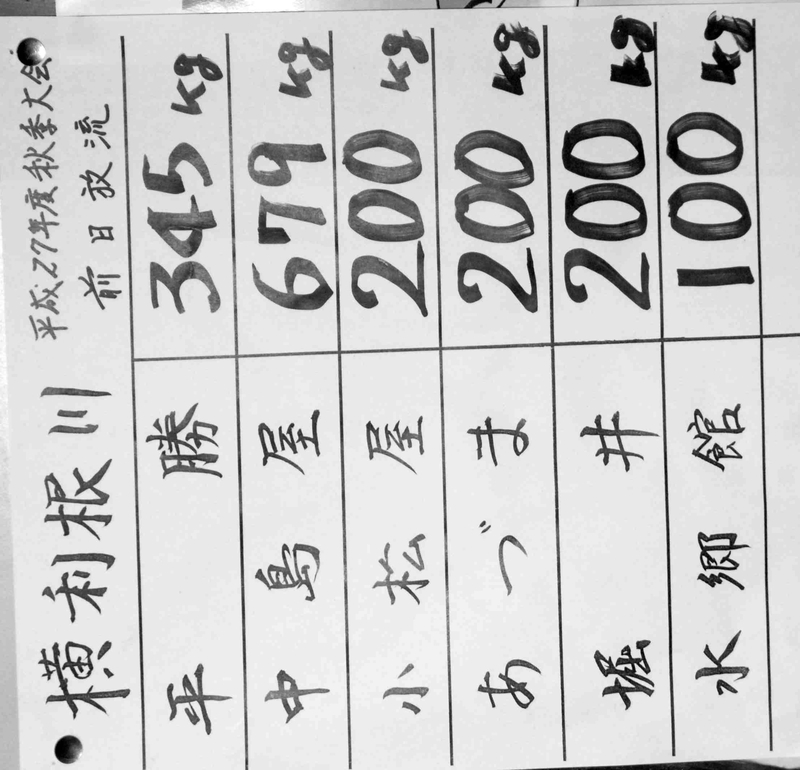 横利根川 平成27年度秋季大会
前日放流
平勝 345kg
中島屋 679kg
小松屋 200kg
あづま 200kg
堀井 200kg
水郷館 100kg